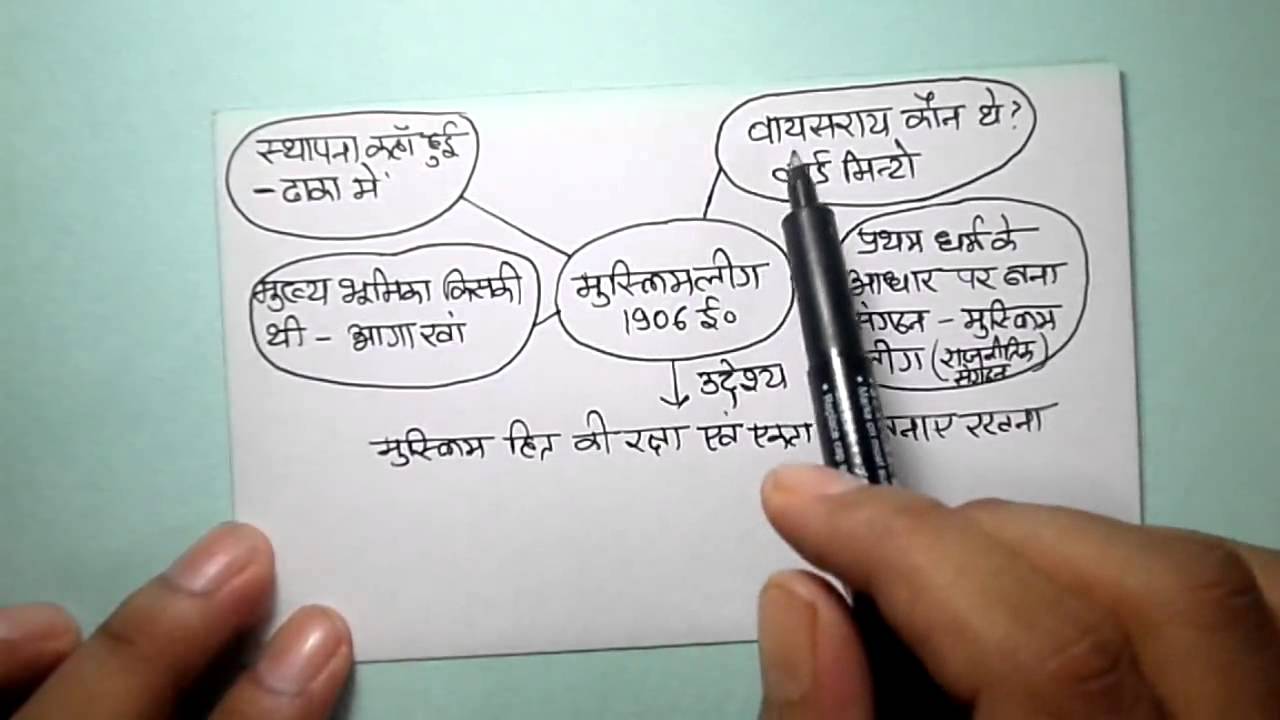 स्थापना कहाँ हुई
- ढाका में
वायसराय कौन थे?
लार्ड मिन्टो
मुख्य भूमिका किसकी
थी - आगा खां
मुस्लिम लीग
1906 ई०
प्रथम धर्म के
आधार पर बना
संगठन - मुस्लिम
लीग (राजनीतिक
संगठन)
उद्देश्य
मुस्लिम हित की रक्षा एवं एकता बनाए रखना